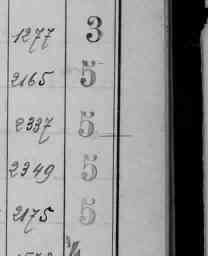 1277 3
2165 5
2337 5
2349 5
2175 5